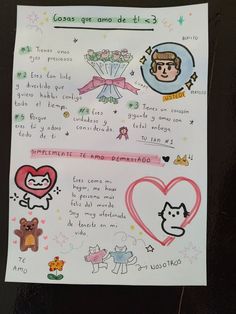 Cosas que amo de ti <3
BONITO
#1 Tienes unos
ojos preciosos
#2 Eres tan lindo y
divertido que
quiero hablar contigo
todo el tiempo.
USTEDE
#4 Eres
cuidadoso y
considerado
#3 Tienes un corazón
gigante y amas con
total entrega
#5 Porque
eres tú y adoro
todo de ti
TU FAN #1
SIMPLEMENTE TE AMO DEMASIADO
Eres como mi
hogar, me haces
la persona más
feliz del mundo.
Soy muy afortunada
de tenerte en mi
vida.
TE
AMO
NOSOTROS